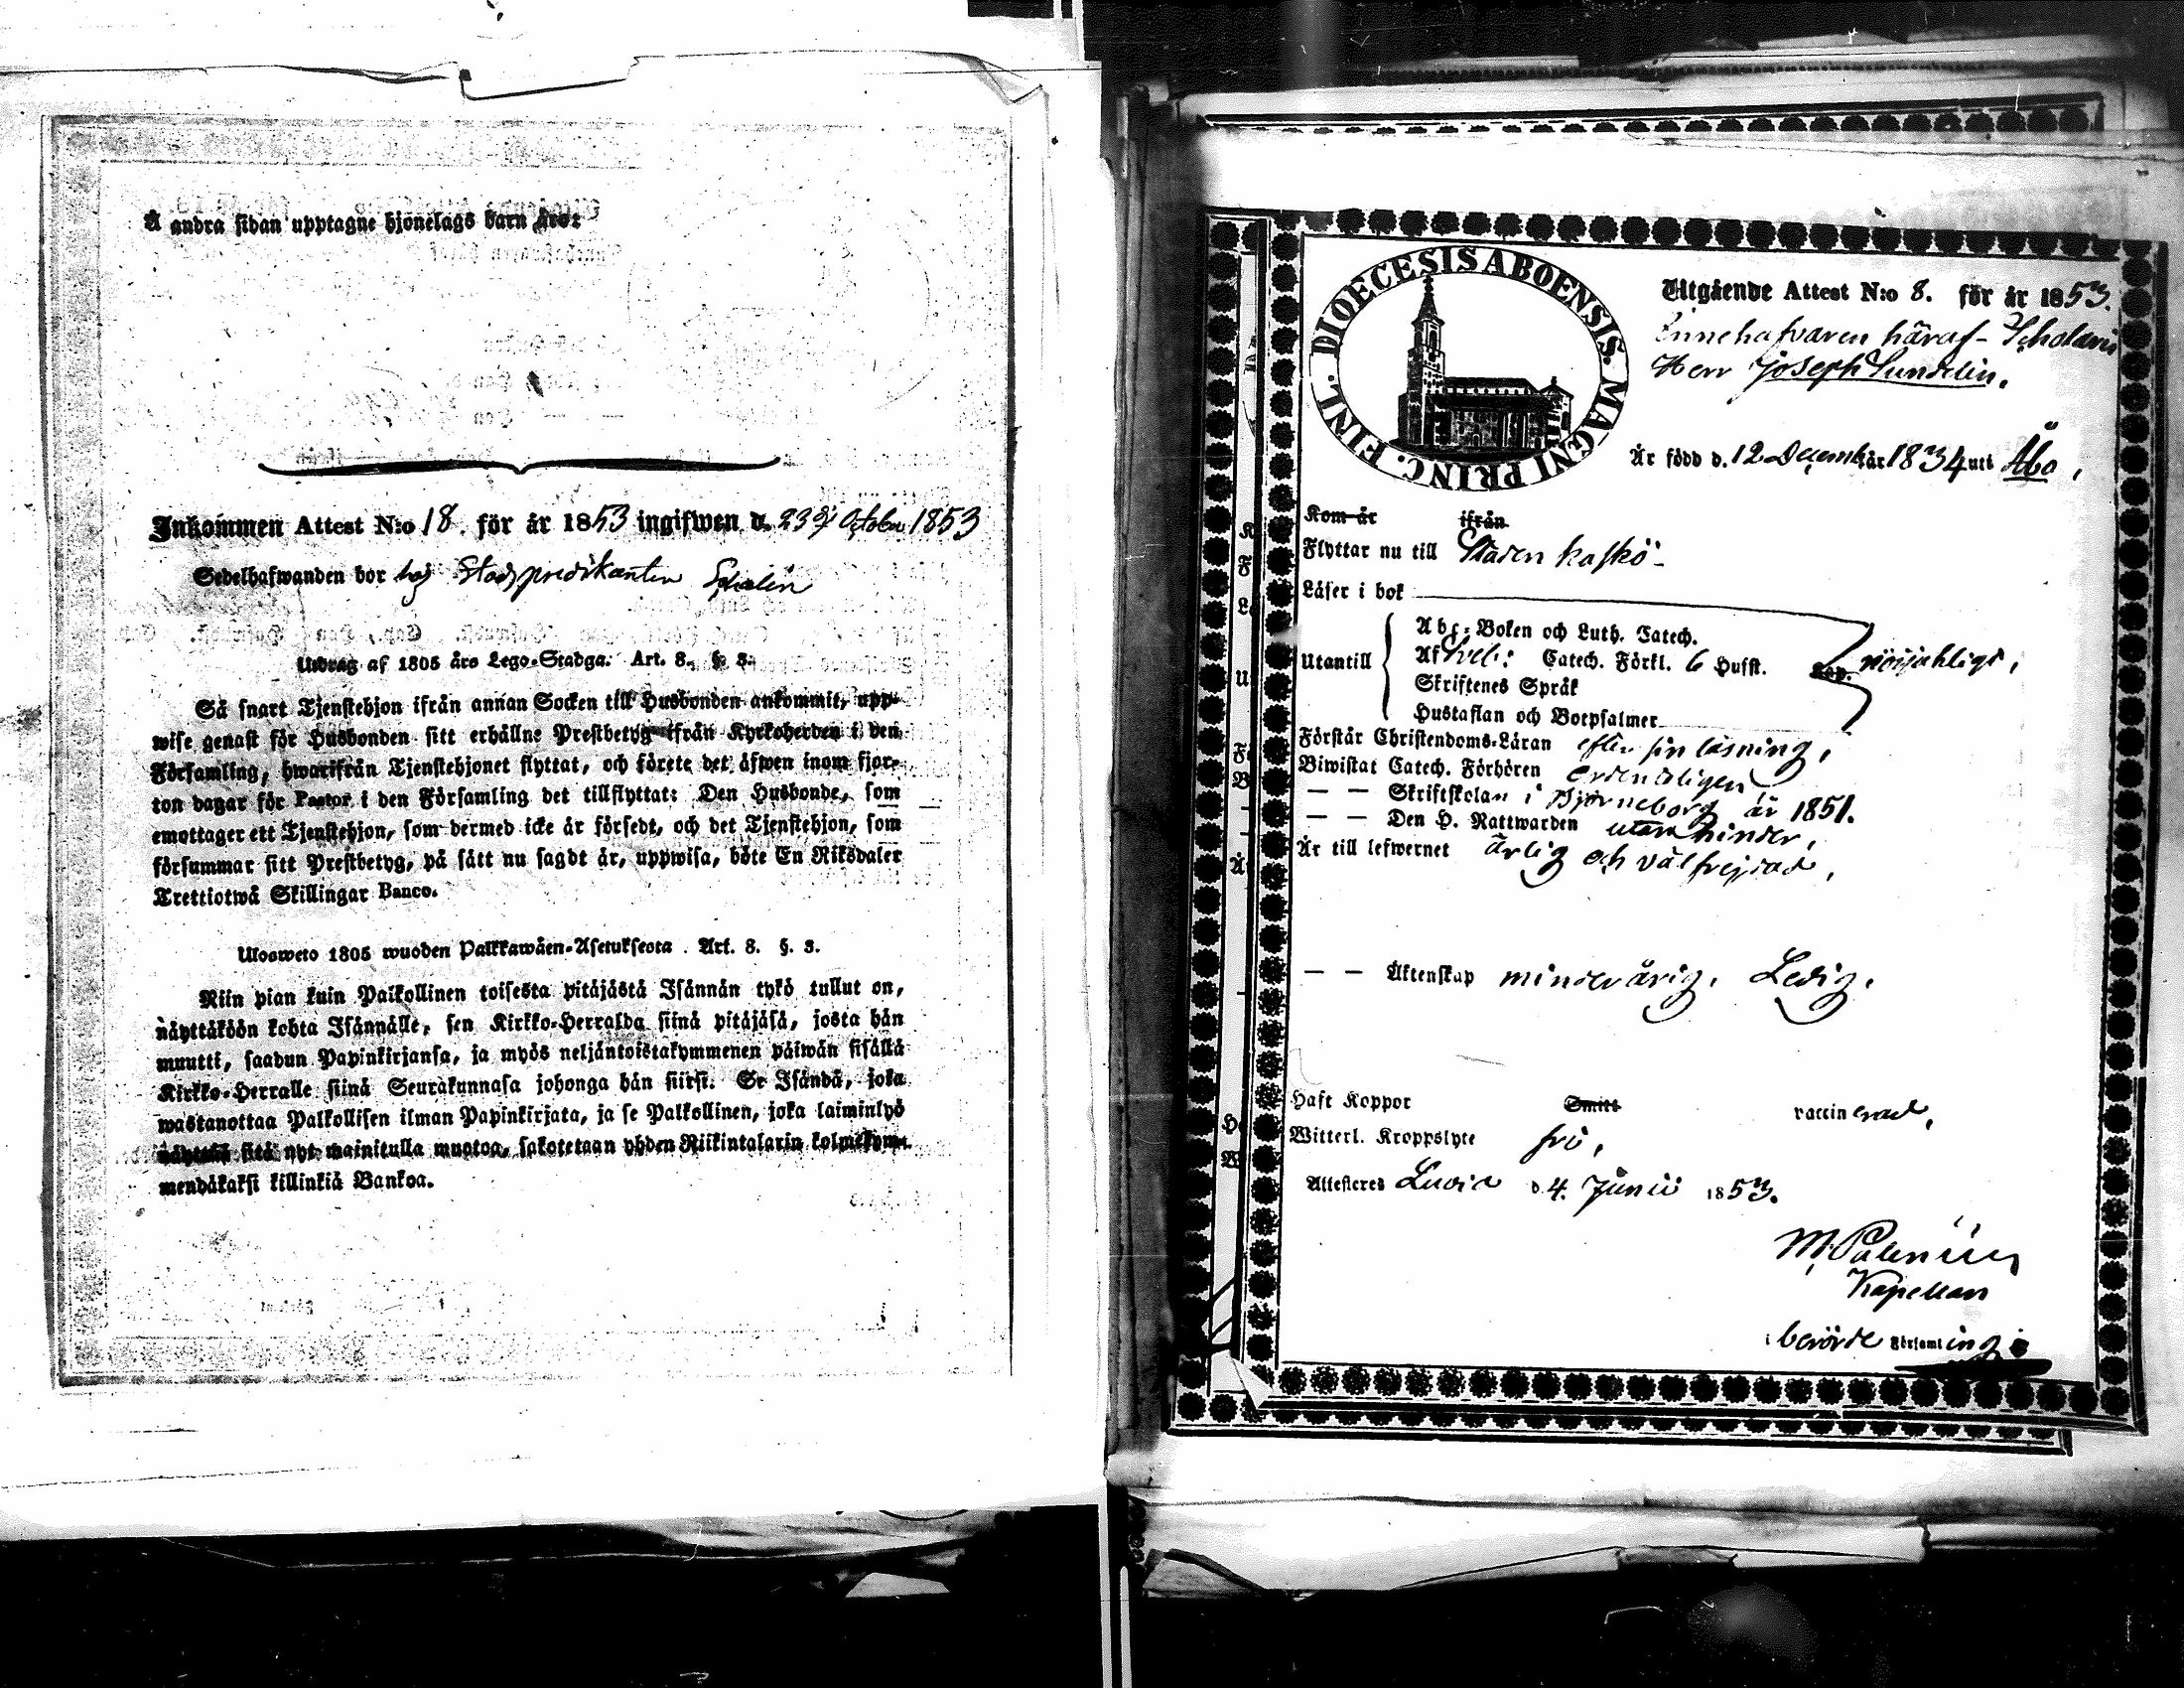 Å andra sidan upptagne hjonelags barn äro:
Inkommen Attest N:o 18. för år 1853 ingifwen d. 23 October 1853
Sedelhafwanden bor hos Stadspredikanten
Utdrag af 1805 års Lego-Stadga. Art. 8., §. 3.
Så snart Tjenstehjon ifrån annan Socken till Husbonden ankommit, upp-
wise genast för Husbonden sitt erhållne Prestbetyg ifrån Kyrkoherden i den
Församling, hwarifrån Tjenstehjonet flyttat, och förete det äfwen inom fjor-
ton dagar för Pastor i den Församling det tillflyttat: Den Husbonde, som
emottager ett Tjenstehjon, som dermed icke är försedt, och det Tjenstehjon, som
försummar sitt Prestbetyg, på sätt nu sagdt är, uppwisa, böte En Riksdaler
Trettiotwå Skillingar Banco.
Ulosweto 1805 wuoden Palkkawäen-Asetuksesta. Art. 8. §. 3.
Niin pian kuin Palkollinen toisesta pitäjästä Isännän tykö tullut on,
näyttäköön kohta Isännälle, sen Kirkko-Herralda siinä pitäjäsä, josta hän
muutti, saadun Papinkirjansa, ja myös neljäntoistakymmenen päiwän sisällä
Kirkko-Herralle siinä Seurakunnasa johonga hän siirsi. Se Isändä, joka
wastanottaa Palkollisen ilman Papinkirjata, ja se Palkollinen, joka laiminlyö
näyttää sitä nyt mainitulla muotoa, sakotetaan yhden Riikintalarin kolmekym-
mendäkaksi killinkiä Bankoa.
DIOECESIS ABOENSIS. MAGNI PRINC. FINL.
Utgående Attest N:o 8. för år 1853.
Innehafvaren häraf - Scholaris
Herr Joseph Sundelin.
Är född d. 12 Decemb. år 1834 uti Åbo,
Kom år ifrån
Flyttar nu till Staden Kaskö -
Läser i bok
Utantill
Abc-Boken och Luth. Catech.
Af Catech. Förkl. 6 Hufst. Kap. nöijachligt,
Skriftenes Språk
Hustaflan och Botpsalmer
Förstår Christendoms-Läran efter sin läsning,
Biwistat Catech. Förhören ordentligen
— — Skriftskolan i Björneborg år 1851.
— — Den H. Nattwarden utan hinder,
Är till lefwernet ärlig och välfrejdad,
— — Äktenskap minderårig. Ledig.
Haft Koppor Smitt vaccinerad,
Witterl. Kroppslyte fri,
Attesteres Luvia d. 4. Junii 1853.
Kapellan
i berörde Församling